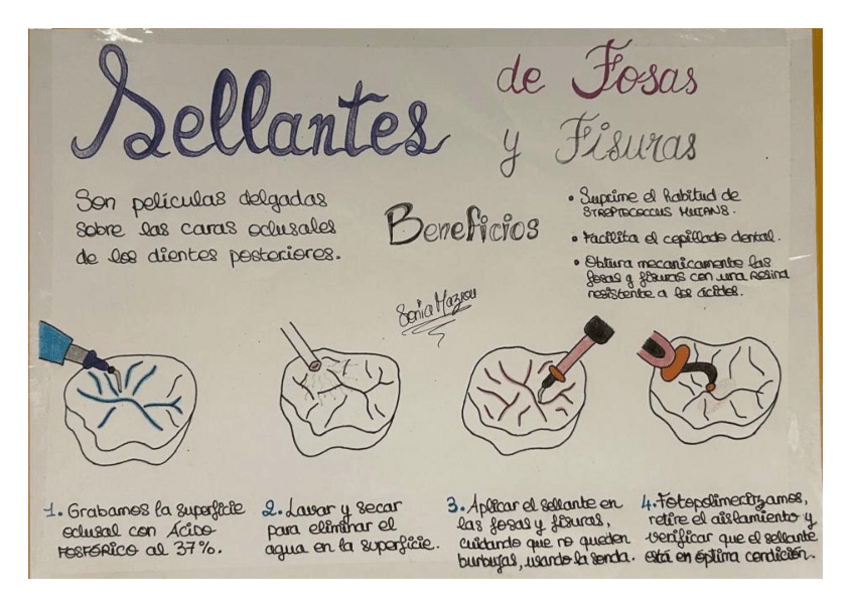 Sellantes
de Fosas
y Fisuras
Son películas delgadas
sobre las caras oclusales
de los dientes posteriores.
Beneficios
• Suprime el habitud de
STREPTOCOCCUS MUTANS.
• Facilita el cepillado dental.
• Obtura mecanicamente las
fosas y fisuras con una resina
resistente a los ácidos.
Sonia
1. Grabamos la superficie
oclusal con ÁCIDO
FOSFÓRICO al 37%.
2. Lavar y secar
para eliminar el
agua en la superficie.
3. Aplicar el sellante en
las fosas y fisuras,
cuidando que no queden
burbujas, usando la sonda.
4. Fotopolimerizamos,
retire el aislamiento y
verificar que el sellante
está en óptima condición.